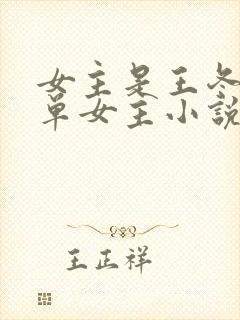 女主是王冬
单女主小説
王正祥